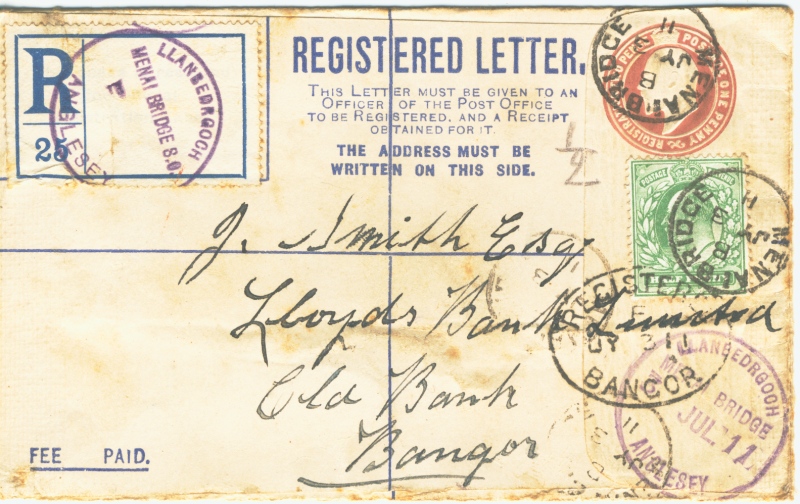 R
25
LLANBEDRGOCH
MENAI BRIDGE S.O.
ANGLESEY
REGISTERED LETTER.
THIS LETTER MUST BE GIVEN TO AN
OFFICER OF THE POST OFFICE
TO BE REGISTERED, AND A RECEIPT
OBTAINED FOR IT.
THE ADDRESS MUST BE
WRITTEN ON THIS SIDE.
1/2
MENAI BRIDGE
B
JY 3
11
POSTAGE ONE PENNY
POSTAGE
MENAI BRIDGE
B
JY 3
11
J. Smith Esq.
Lloyds Bank Limited
Old Bank
Bangor
REGISTERED
3 11
BANGOR
LLANBEDRGOCH
BRIDGE
JUL 11
ANGLESEY
FEE PAID.